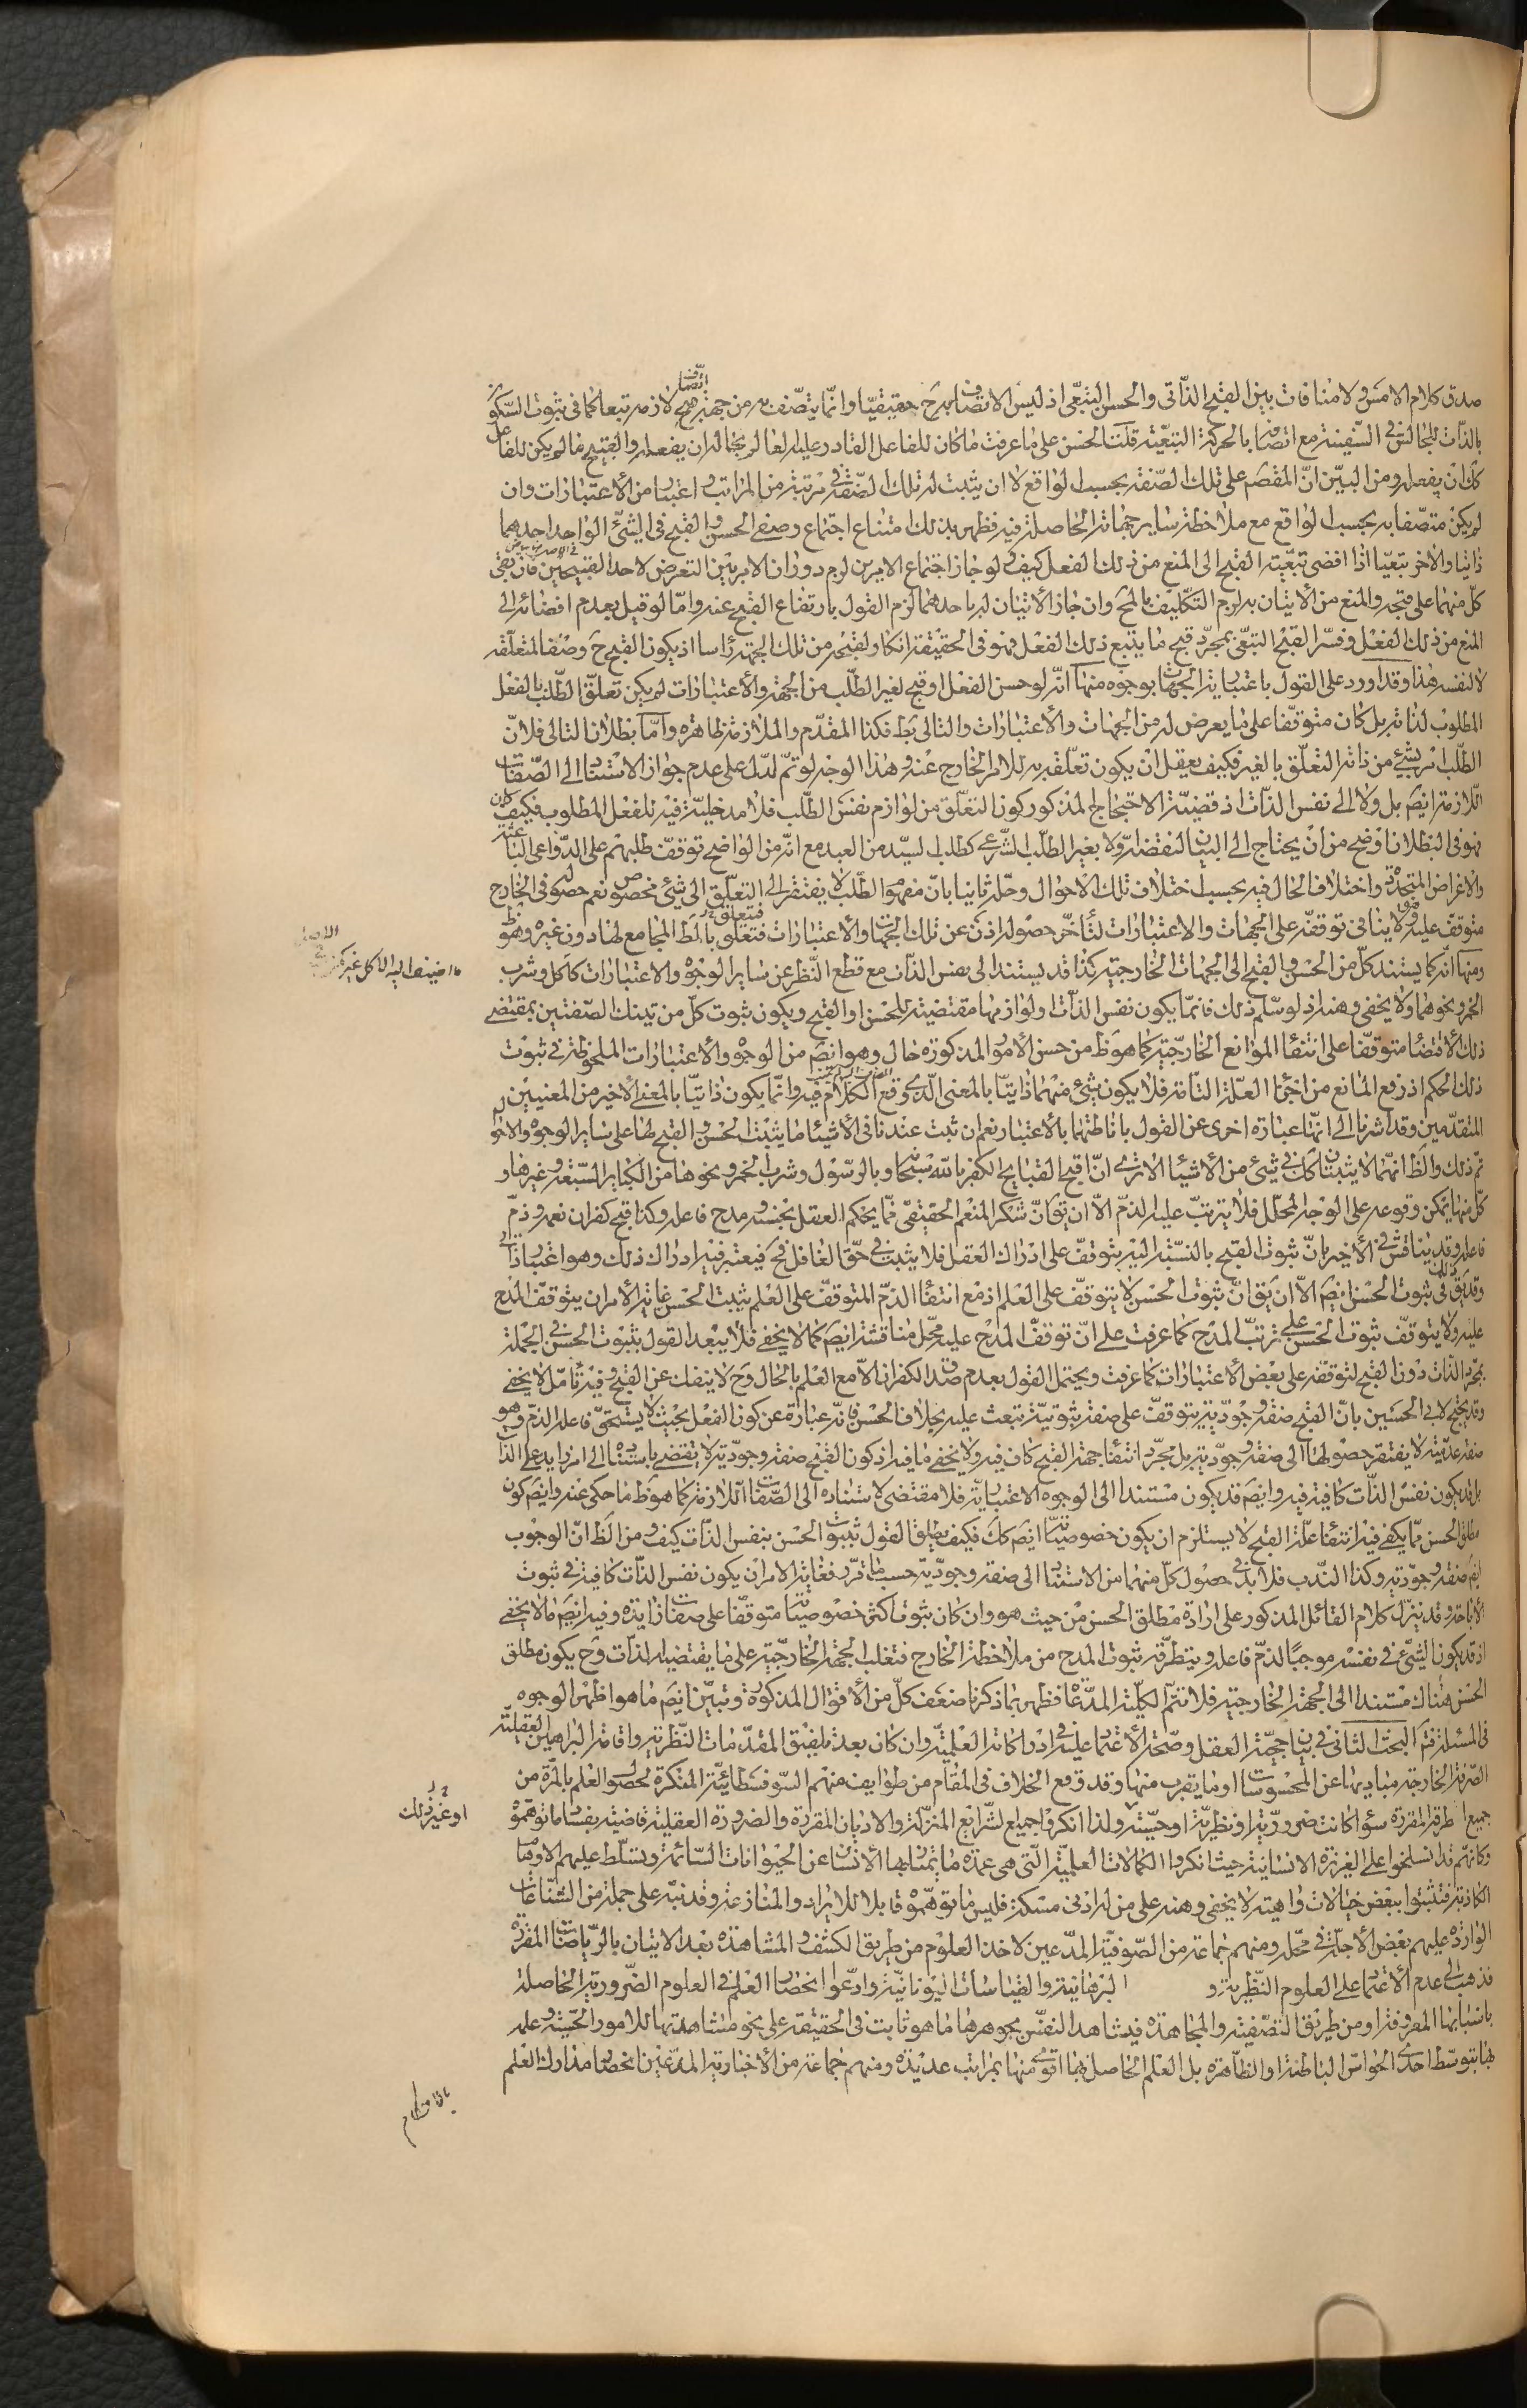 صدق كلام الامس ولا منافات بين القبح الذاتى والحسن التبعى اذ ليس الاتصاف به ح حقيقيا وانما يتصف به من جهة اتصاف لازمه تبعا كما فى ثبوت السكون
بالذات للجالس فى السفينة مع اتصافه بالحركة التبعية قلت الحسن على ما عرفت ما كان للفاعل القادر عليه العالم بحاله ان يفعله والقبيح ما لم يكن للفاعل
كك ان يفعله ومن البين ان المقصم على تلك الصفة بحسب الواقع لا ان يثبت له تلك الصفة فى مرتبة من المراتب واعتبار من الاعتبارات وان
لم يكن متصفا به بحسب الواقع مع ملاحظة ساير جهاته الحاصلة فيه فظهر بذلك امتناع اجتماع وصفى الحسن والقبح فى الشئ الواحد احدهما
ذاتيا والاخر تبعيا اذا افضى تبعية القبح الى المنع من ذلك الفعل كيف ولو جاز اجتماع الامرين لزم دوران الامر بين التعرض لاحد القبيحين فان بقى
كل منهما على قبحه والمنع من الاتيان به لزم التكليف بالمحَ وان جاز الاتيان له باحدهما لزم القول بارتفاع القبح عنه واما لو قيل بعدم افضائه الى
المنع من ذلك الفعل وفسر القبح التبعى بمجرد قبح ما يتبع ذلك الفعل فهو فى الحقيقة انكار لقبحه من تلك الجهة راسا اذ يكون القبح ح وصفا لمتعلقه
لا لنفسه هذا وقد اورد على القول باعتبارية الجهات بوجوه منها انه لو حسن الفعل او قبح لغير الطلب من الجهة والاعتبارات لم يكن تعلق الطلب بالفعل
المطلوب لذاته بل كان متوقفا على ما يعرض له من الجهات والاعتبارات والتالى بط فكذا المقدم والملازمة ظاهرة واما بطلان التالى فلان
الطلب امر بشئ من ذاته التعلق بالغير فكيف يعقل ان يكون تعلقه به للامر الخارج عنه وهذا الوجه لو تم لدل على عدم جواز الاستناد الى الصفات
اللازمة ايضَ بل ولا الى نفس الذات اذ قضية الاحتجاج المذكور كون التعلق من لوازم نفس الطلب فلا مدخلية فيه للفعل المطلوب فكيف كان
فهو فى البطلان اوضح من ان يحتاج الى البيان لنقضه اولا بغير الطلب الشرعى كطلب السيد من العبد مع انه من الواضح توقف طلبهم على الدواعى الباعثة
والاغراض المتجددة واختلاف الحال فيه بحسب اختلاف تلك الاحوال وحله ثانيا بان مفهوم الطلب لا يفتقر الى التعلق الى شئ مخصوص نعم حصوله فى الخارج
متوقف عليه فهو لا ينافى توقفه على الجهات والاعتبارات لتأخر حصوله اذن عن تلك الجهات والاعتبارات فتعلق بالط المجامع لها دون غيره وهو ظ
ومنها انه كما يستند كل من الحسن والقبح الى الجهات الخارجية كذا قد يستند الى نفس الذات مع قطع النظر عن ساير الوجوه والاعتبارات كاكل وشرب
الخمر ونحوهما ولا يخفى وهنه اذ لو سلم ذلك فانما يكون نفس الذات ولوازمها مقتضية للحسن او القبح ويكون ثبوت كل من تينك الصفتين بمقتضى
ذلك الاقتضاء متوقفا على انتفاء الموانع الخارجية كما هو ظ من حسن الامور المذكورة حال وهو ايضَ من الوجوه والاعتبارات الملحوظة فى ثبوت
ذلك الحكم اذ رفع المانع من اجزاء العلة التامة فلا يكون شئ منهما ذاتيا بالمعنى الذى وقع الكلام فيه وانما يكون ذاتيا بالمعنى الاخير من المعنيين
المتقدمين وقد اشرنا الى انها عبارة اخرى عن القول باناطتهما بالاعتبار نعم ان ثبت عندنا فى الاشياء ما يثبت الحسن والقبح لها على ساير الوجوه والاحوال
تم ذلك والظَ انهما لا يثبتان كك فى شئ من الاشياء الا ترى ان اقبح القبايح الكفر بالله سبحانه وبالرسول وشرب الخمر ونحوها من الكبائر السبعة وغيرها و
كل منها يمكن وقوعه على الوجه المحلل فلا يترتب عليه الذم الا ان يقَ ان شكر المنعم الحقيقى مما يحكم العقل بحسنه ومدح فاعله وكذا قبح كفران نعمه وذم
فاعله وقد يناقش فى الاخير بان ثبوت القبح بالنسبة اليه يتوقف على ادراك العقل فلا يثبت فى حق الغافل فح فيعتبر فيه ادراك ذلك وهو اعتبار زايد
وقد يقَ فى ثبوت الحسن ايضَ الا ان يقَ ان ثبوت الحسن لا يتوقف على العلم اذ مع انتفاء الذم المتوقف على العلم يثبت الحسن غاية الامر ان يتوقف المدح
عليه ولا يتوقف ثبوت الحسن على ترتب المدح كما عرفت على ان توقف المدح عليه محل مناقشة ايضَ كما لا يخفى فلا يبعد القول بثبوت الحسن فى الجملة
بمجرد الذات دون القبح لتوقفه على بعض الاعتبارات كما عرفت ويحتمل القول بعدم صدق الكفران الا مع العلم بالحال وح لا ينفك عن القبح وفيه تامل لا يخفى
وقد يحتج لابى الحسين بان القبح صفة وجودية يتوقف على صفة ثبوتية تبعث عليه بخلاف الحسن فانه عبارة عن كون الفعل بحيث لا يستحق فاعله الذم وهو
صفة عدمية لا يفتقر حصولها الى صفة وجودية بل مجرد انتفاء جهة القبح كاف فيه ولا يخفى ما فيه اذ كون القبح صفة وجودية لا يقتضى باستناده الى امر زايد على الذات
بل قد يكون نفس الذات كافية فيه وايضَ قد يكون مستندا الى الوجوه الاعتبارية فلا مقتضى لاستناده الى الصفات اللازمة كما هو ظ ما حكى عنه وايضَ كون
مطلق الحسن مما يكفى فيه انتفاء علة القبح لا يستلزم ان يكون خصوصياته ايضَ كك فكيف يطلق القول بثبوت الحسن بنفس الذات كيف ومن الظَ ان الوجوب
ايضَ صفة وجودية وكذا الندب فلا بد فى حصول كل منهما من الاستناد الى صفة وجودية حسب ما قرره فغاية الامر ان يكون نفس الذات كافية فى ثبوت
الاباحة وقد ينزل كلام القائل المذكور على ارادة مطلق الحسن من حيث هو وان كان ثبوت اكثر خصوصياته متوقفا على صفات زايدة وفيه ايضَ ما لا يخفى
اذ قد يكون الشئ فى نفسه موجبًا لذم فاعله ويتطرقه ثبوت المدح من ملاحظة الخارج فتغلب الجهة الخارجية على ما يقتضيه الذات وح يكون مطلق
الحسن هناك مستندا الى الجهة الخارجية فلا تتم الكلية المدعاة فظهر بما ذكرنا ضعف كل من الاقوال المذكورة وتبين ايضَ ما هو اظهر الوجوه
فى المسئلة ثم البحث الثانى فى بيان حجية العقل وصحة الاعتماد عليه فى ادراكاته العلمية وان كان بعد تلفيق المقدمات النظرية واقامة البراهين العقلية
الصرفة الخارجة مباديها عن المحسوسات او ما يقرب منها وقد وقع الخلاف فى المقام من طوايف منهم السوفسطائية المنكرة لحصول العلم بالمرة من
جميع الطرق المقررة سواء كانت ضرورية او نظرية او حسية ولذا انكروا جميع الشرائع المنزلة والاديان المقررة والضرورة العقلية قاضية بفساد ما توهموه
وكانهم قد انسلخوا على الغريزة الانسانية حيث انكروا الكمالات العلمية التى هى عمدة ما يمتاز بها الانسان عن الحيوانات السائمة وتسلط عليهم الاوهام
الكاذبة فتشبثوا ببعض خيالات واهية لا يخفى وهنه على من له ادنى مسكة فليس ما توهموه قابلا للايراد والمنازعة وقد نبه على جملة من الشناعات
الواردة عليهم بعض الاجلة فى محله ومنهم جماعة من الصوفية المدعين لاخذ العلوم من طريق الكشف والمشاهدة بعد الاتيان بالرياضات المقررة
فذهب الى عدم الاعتماد على العلوم النظرية و البرهانية والقياسات اليونانية وادعوا انحصار العلم فى العلوم الضرورية الحاصلة
باسبابها المعروفة او من طريق التصفية والمجاهدة فيشاهد النفس بجوهرها ما هو ثابت فى الحقيقة على نحو مشاهدتها للامور الحسية وعلمه
بها بتوسط احدى الحواس الباطنة او الظاهرة بل العلم الحاصل بها اقوى منها بمراتب عديدة ومنهم جماعة من الاخبارية المدعين انحصار مدارك العلم
او غير ذلك